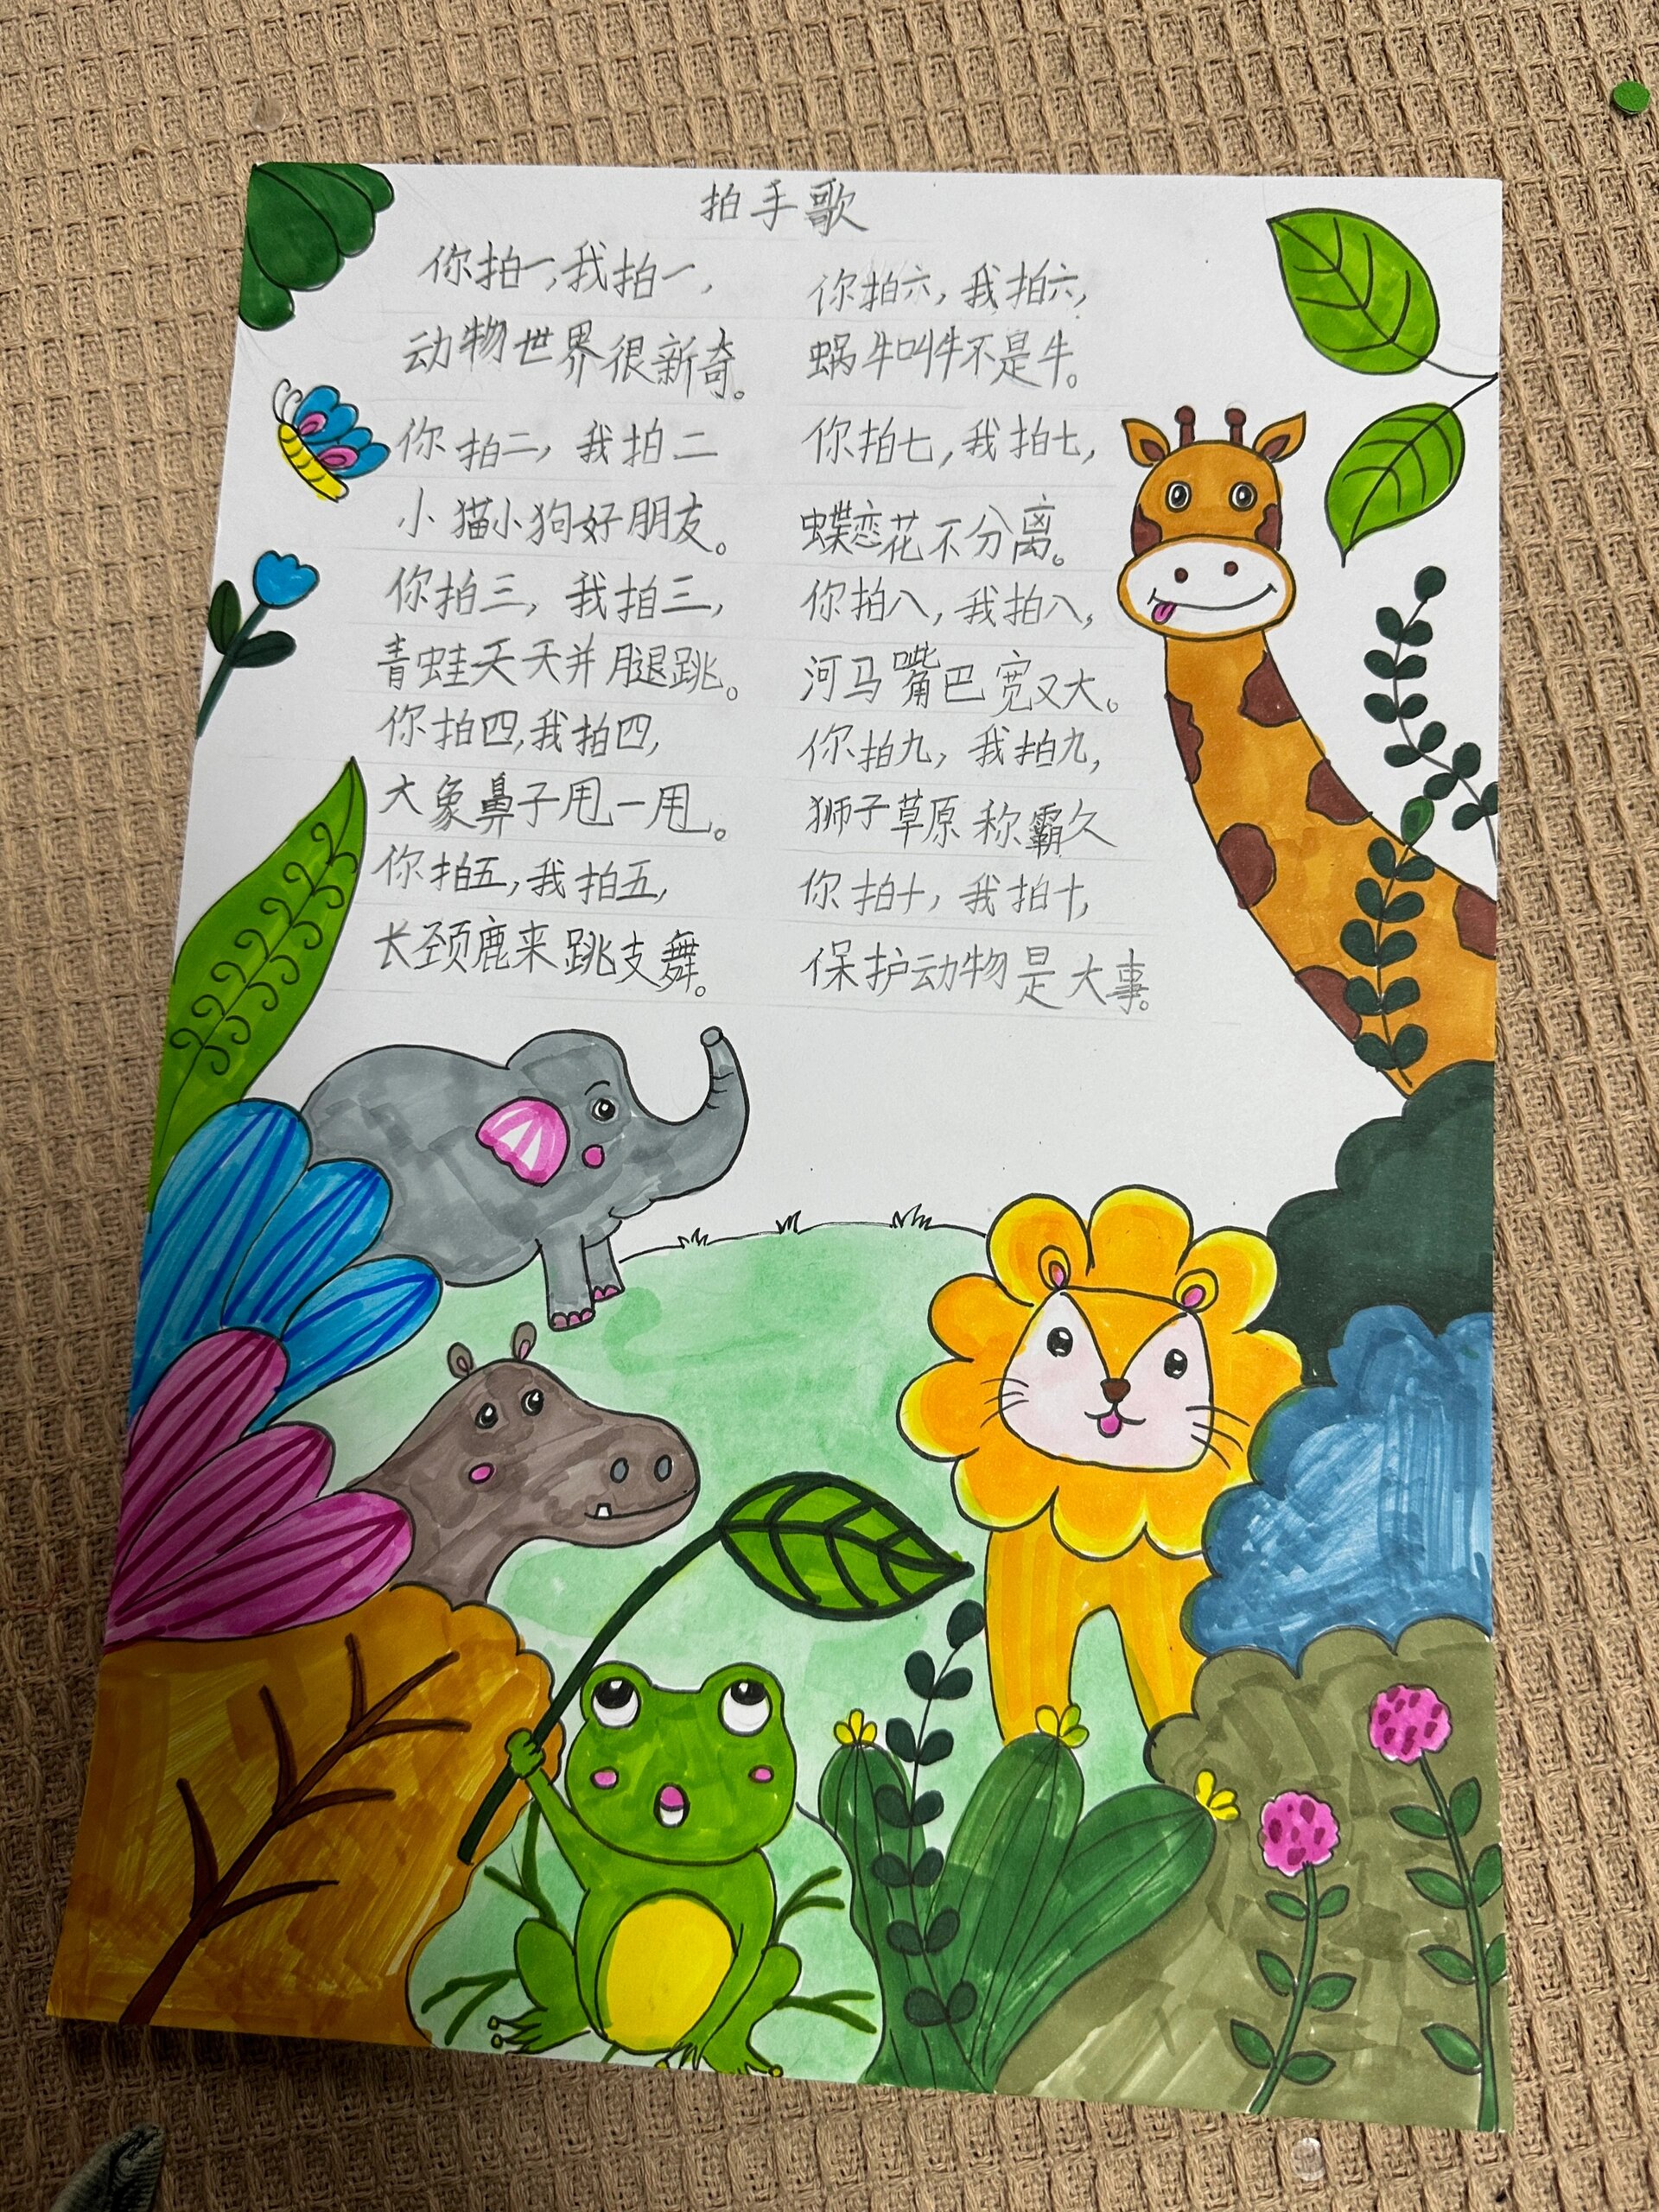 拍手歌
你拍一,我拍一,
动物世界很新奇。
你拍二,我拍二
小猫小狗好朋友。
你拍三,我拍三,
青蛙天天并腿跳。
你拍四,我拍四,
大象鼻子甩一甩。
你拍五,我拍五,
长颈鹿来跳支舞。
你拍六,我拍六,
蜗牛叫牛不是牛。
你拍七,我拍七,
蝶恋花不分离。
你拍八,我拍八,
河马嘴巴宽又大。
你拍九,我拍九,
狮子草原称霸久
你拍十,我拍十,
保护动物是大事。